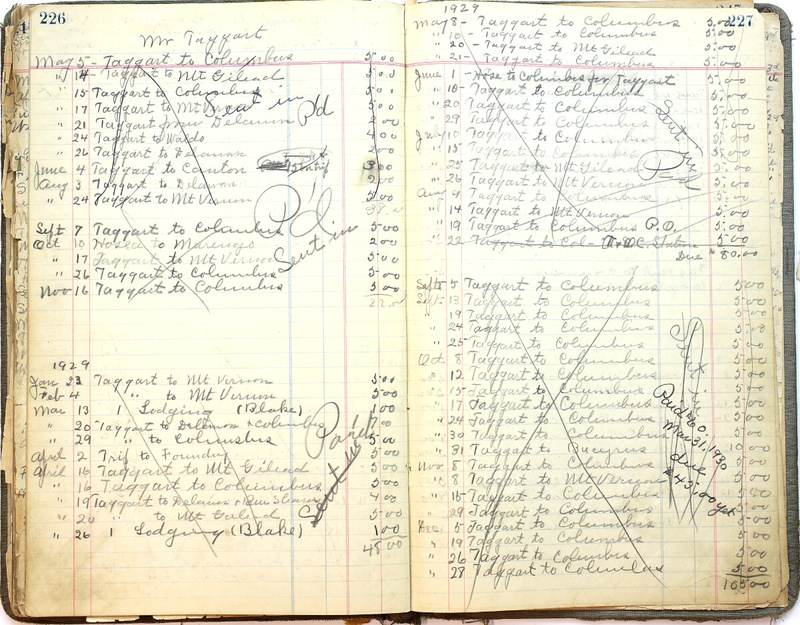 226
Mr Taggart
May 5 - Taggart to Columbus 5 00
" 14 - Taggart to Mt Gilead 5 00
" 15 Taggart to Columbus 5 00
" 17 Taggart to Mt Vernon 5 00
Sent in
Pd
" 21 Taggart from Delaware 2 00
" 24 Taggart to Waldo 4 00
" 26 Taggart to Delaware 2 00
June 4 Taggart to Canton 3 00
Aug 3 Taggart to Delaware 2 00
" 24 Taggart to Mt Vernon 5 00
38.00
Pd
Sent in
Sept 7 Taggart to Columbus 5 00
Oct 10 Hosea to Marengo 2 00
" 17 Taggart to Mt Vernon 5 00
" 26 Taggart to Columbus 5 00
Nov 16 Taggart to Columbus 5 00
22.00
1929
Jan 23 Taggart to Mt Vernon 5 00
Feb 4 " to Mt Vernon 5 00
Mar 13 1 Lodging (Blake) 1 00
" 20 Taggart to Delaware & Columbus 7 00
" 29 " to Columbus 5 00
April 2 Trip to Foundry 5 00
April 16 Taggart to Mt Gilead 5 00
" 16 Taggart to Columbus 5 00
" 19 Taggart to Delaware 4 00
" 20 " to Mt Gilead 5 00
" 26 1 Lodging (Blake) 1 00
48 00
Paid
Sent in
227
1929
May 8 - Taggart to Columbus 5.00
" 10 - Taggart to Columbus 5.00
" 20 - Taggart to Mt Gilead 5.00
" 21 - Taggart to Columbus 5.00
June 1 - Hose to Columbus for Taggart 5.00
" 10 - Taggart to Columbus 5.00
" 20 Taggart to Columbus 5.00
" 29 Taggart to Columbus 5.00
July 10 Taggart to Columbus 5.00
" 15 Taggart to Columbus 5.00
" 25 Taggart to Mt Vernon 5.00
" 26 Taggart to Mt Vernon 5.00
Aug 4 Taggart to Columbus 5.00
" 14 Taggart to Mt Vernon 5.00
" 19 Taggart to Columbus P.D. 5.00
" 22 Taggart to Col - Station 5 00
Due $80.00
Sent in
Paid
Sept 5 Taggart to Columbus 5 00
Sept 13 Taggart to Columbus 5 00
" 19 Taggart to Columbus 5 00
" 24 Taggart to Columbus 5 00
" 25 Taggart to Columbus 5 00
Oct 8 Taggart to Columbus 5 00
" 12 Taggart to Columbus 5 00
" 15 Taggart to Columbus 5 00
" 17 Taggart to Columbus 5 00
" 24 Taggart to Columbus 5 00
" 30 Taggart to Columbus 5 00
" 31 Taggart to Bucyrus 10 00
Nov 8 Taggart to Columbus 5 00
" 8 Taggart to Mt Vernon 5 00
" 15 Taggart to Columbus 5 00
" 29 Taggart to Columbus 5 00
Dec 5 Taggart to Columbus 5 00
" 19 Taggart to Columbus 5 00
" 26 Taggart to Columbus 5 00
" 28 Taggart to Columbus 5 00
105 00
Sent in
Paid 60.
Mar 31, 1930
due
$45.00 yet